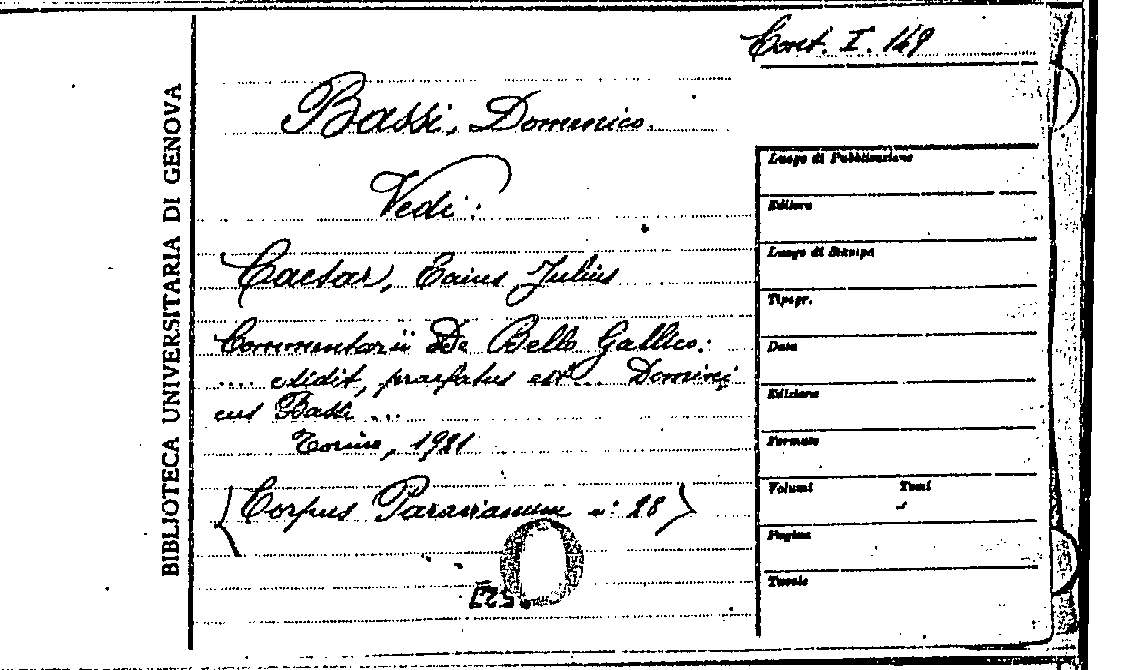 Cont. I. 149
Bassi, Domenico.
Vedi:
Caesar, Caius Julius
Commentarii De Bello Gallico:
.... edidit, praefatus est... Domini
cus Bassi ...
Torino, 1921
(Corpus Paravianum n: 28)
BIBLIOTECA UNIVERSITARIA DI GENOVA
Luogo di Pubblicazione
Editore
Luogo di Stampa
Tipogr.
Data
Edizione
Formato
Volumi Tomi
Pagine
Tavole